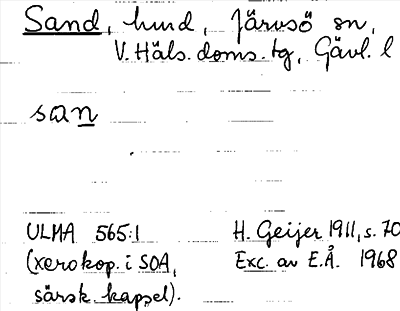 Sand, hund, Järvsö sn,
V. Häls. doms. tg, Gävl. l
san
ULMA 565:1
(xerokop. i SOA,
särsk. kapsel).
H. Geijer 1911, s. 70
Exc. av E.Å. 1968